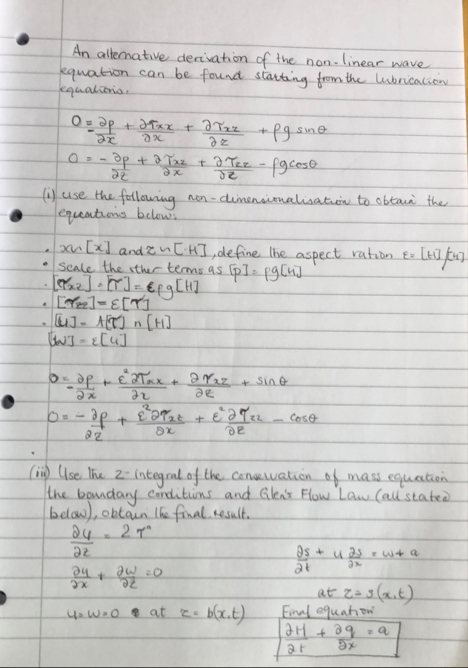 An alternative derivation of the non-linear wave
equation can be found starting from the lubrication
equations.
0 = -∂p/∂x + ∂τxx/∂x + ∂τxz/∂z + ρg sinθ
0 = -∂p/∂z + ∂τxz/∂x + ∂τzz/∂z - ρg cosθ
(i) use the following non-dimensionalisation to obtain the
equations below:
• x~[x] and z~[H], define the aspect ration ε = [H]/[H]
• scale the other terms as [p] = ρg[H]
• [τxz] = [τ] = ερg[H]
• [τxx] = ε[τ]
• [u] = A[τ] n [H]
[w] = ε[u]
0 = -∂p/∂x + ε²∂τxx/∂x + ∂τxz/∂z + sinθ
0 = -∂p/∂z + ε²∂τxz/∂x + ε²∂τzz/∂z - cosθ
(iii) Use the z-integral of the conservation of mass equation
the boundary conditions and Glen's Flow Law (all stated
below), obtain the final result.
∂u/∂z = 2τⁿ
∂s/∂t + u ∂s/∂x = w + a
∂u/∂x + ∂w/∂z = 0
at z = s(x,t)
u = w = 0 at z = b(x,t)
Final equation
∂H/∂t + ∂q/∂x = a